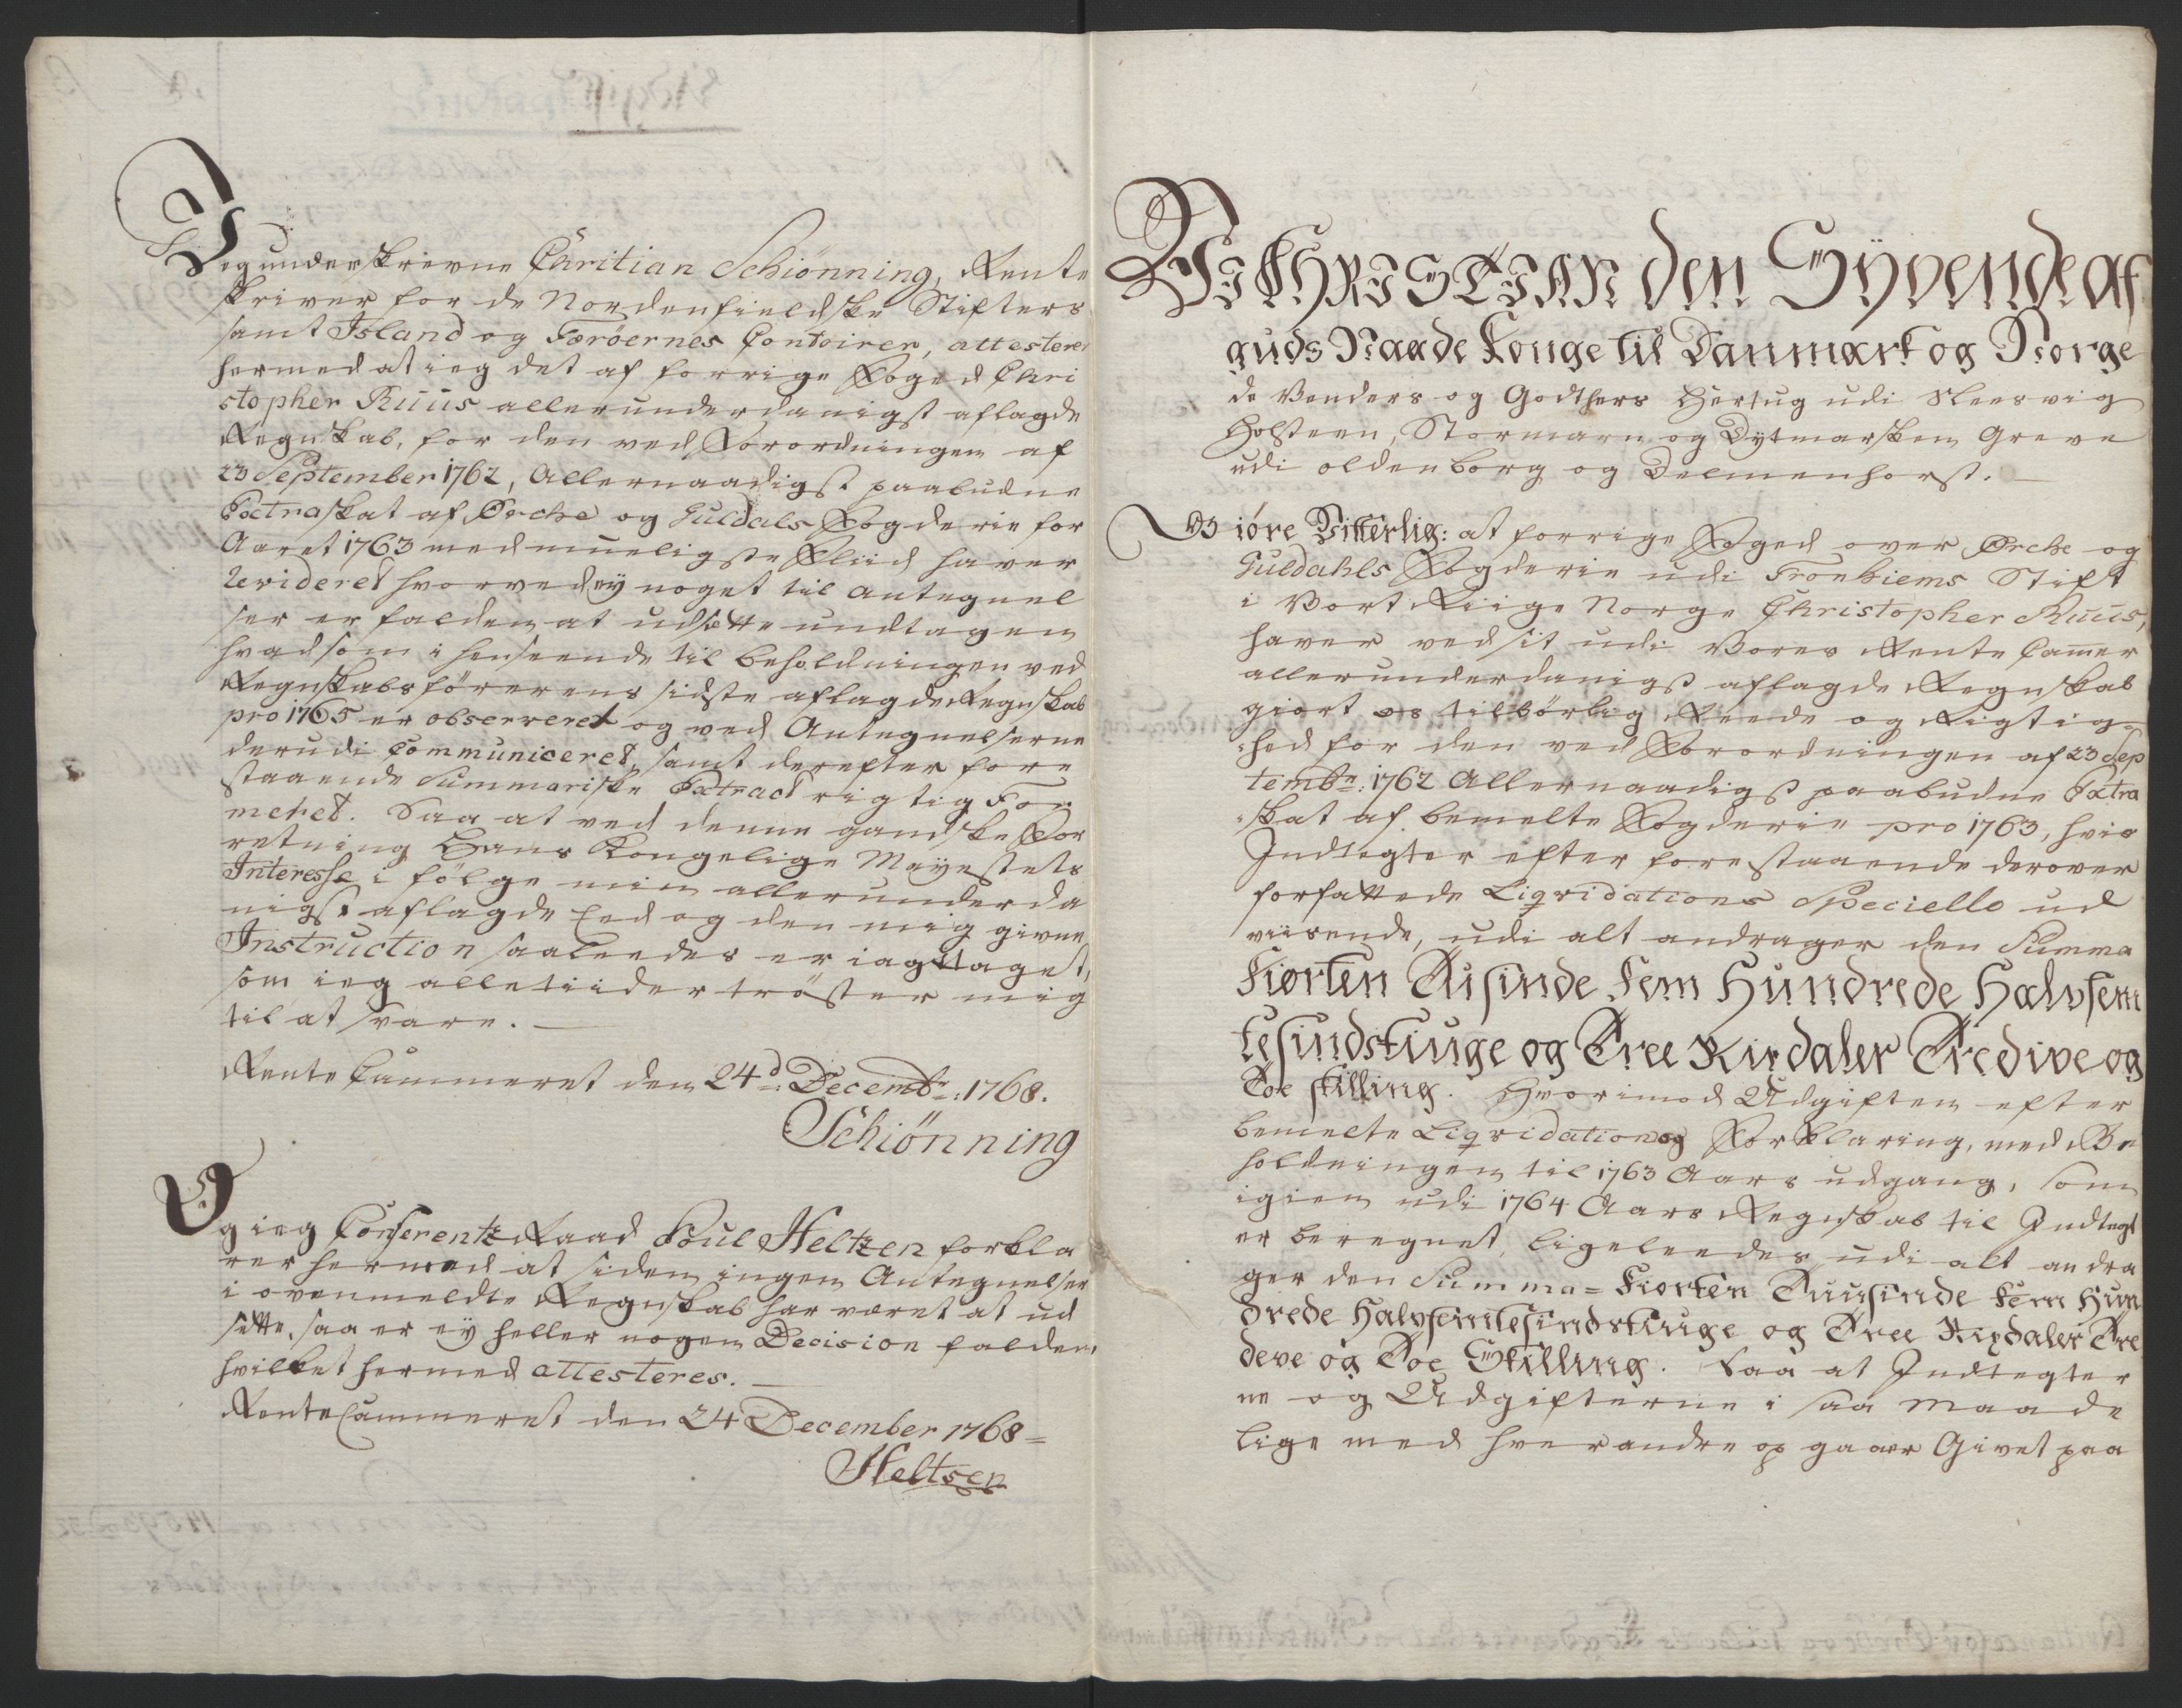 Jeg underskrevne Chritian Schiönning, Rente
skriver for de Nordenfieldske Stifters
samt Island og Færöernes Contoirer, attesterer
hermed at ieg det af forrige Foged Chri
stopher Ruus allerunderdanigst aflagde
Regnskab, for den ved Forordningen af
23 September 1762, Allernaadigst paabudne
Extraskat af Örche og Guldals Fogderie for
Aaret 1763 med mueligste Fliid haver
Revideret hvorved ey noget til Antegnel
ser er falden at udsætte undtagen
hvad som i henseende til beholdningen ved
Regnskabsförerens sidste aflagde Regnskab
pro 1765 er observeret og ved Antegnelserne
derudi Communiceret, samt derefter fore
staaende Summariske Extract rigtig For
meret. Saa at ved denne gandske For
retning Hans Kongelige Mayestets
Interesse i fölge min allerunderda
nigst aflagde Eed og den mig givne
Instruction saaleedes er iagttaget,
som ieg alletiider tröster mig
til at svare.
Rente Cammeret den 24d: Decembr: 1768.
Schiönning
Og ieg Conferentz Raad Poul Heltzen forkla
rer hermed at siden ingen Antegnelser
i ovenmeldte Regnskab har været at ud
sætte, saa er ey heller nogen Decision falden,
hvilket hermed attesteres.
Rente Cammeret den 24 December 1768
Heltsen
Vi CHRISTIAN den Syvende af
guds Naade Konge til Danmark og Norge
de Venders og Gothers Hertug udi Sleesvig
Holsteen, Stormarn og Dytmarsken Greve
udi oldenborg og Delmenhorst.
Giöre Vitterlig: at forrige Foged over Örche og
Guldahls Fogderie udi Tronhiems Stift
i Vort Riige Norge Christopher Ruus,
haver ved sit udi Vores Rente Cammer
allerunderdanigst aflagde Regnskab
giort os tilbörlig Reede og Rigtig-
hed for den ved Forordningen af 23 Sep
tembr: 1762 Allernaadigst paabudne Extra
skat af bemelte Fogderie pro 1763, hvis
Indtægter efter forestaaende derover
forfattede Liqvidations Speciello ud
viisende, udi alt andrager den Summa
Fiorten Tusinde Fem Hundrede Halvfem
tesindstiuge og Tree Rixdaler Tredive og
Toe skilling. Hvorimod Udgiften efter
bemelte Liqvidation og Forklaring, med Be
holdningen til 1763 Aars udgang, som
igien udi 1764 Aars Regnskab til Indtægt
er beregnet, ligeleedes udi alt andra
ger den Summa = Fiorten Tuusinde Fem Hun
drede Halvfemtesindstiuge og Tree Rixdaler Tre
deve og Toe Skilling. Saa at Indtægter
ne og Udgifterne i saa maade
lige med hverandre op gaaer Givet paa